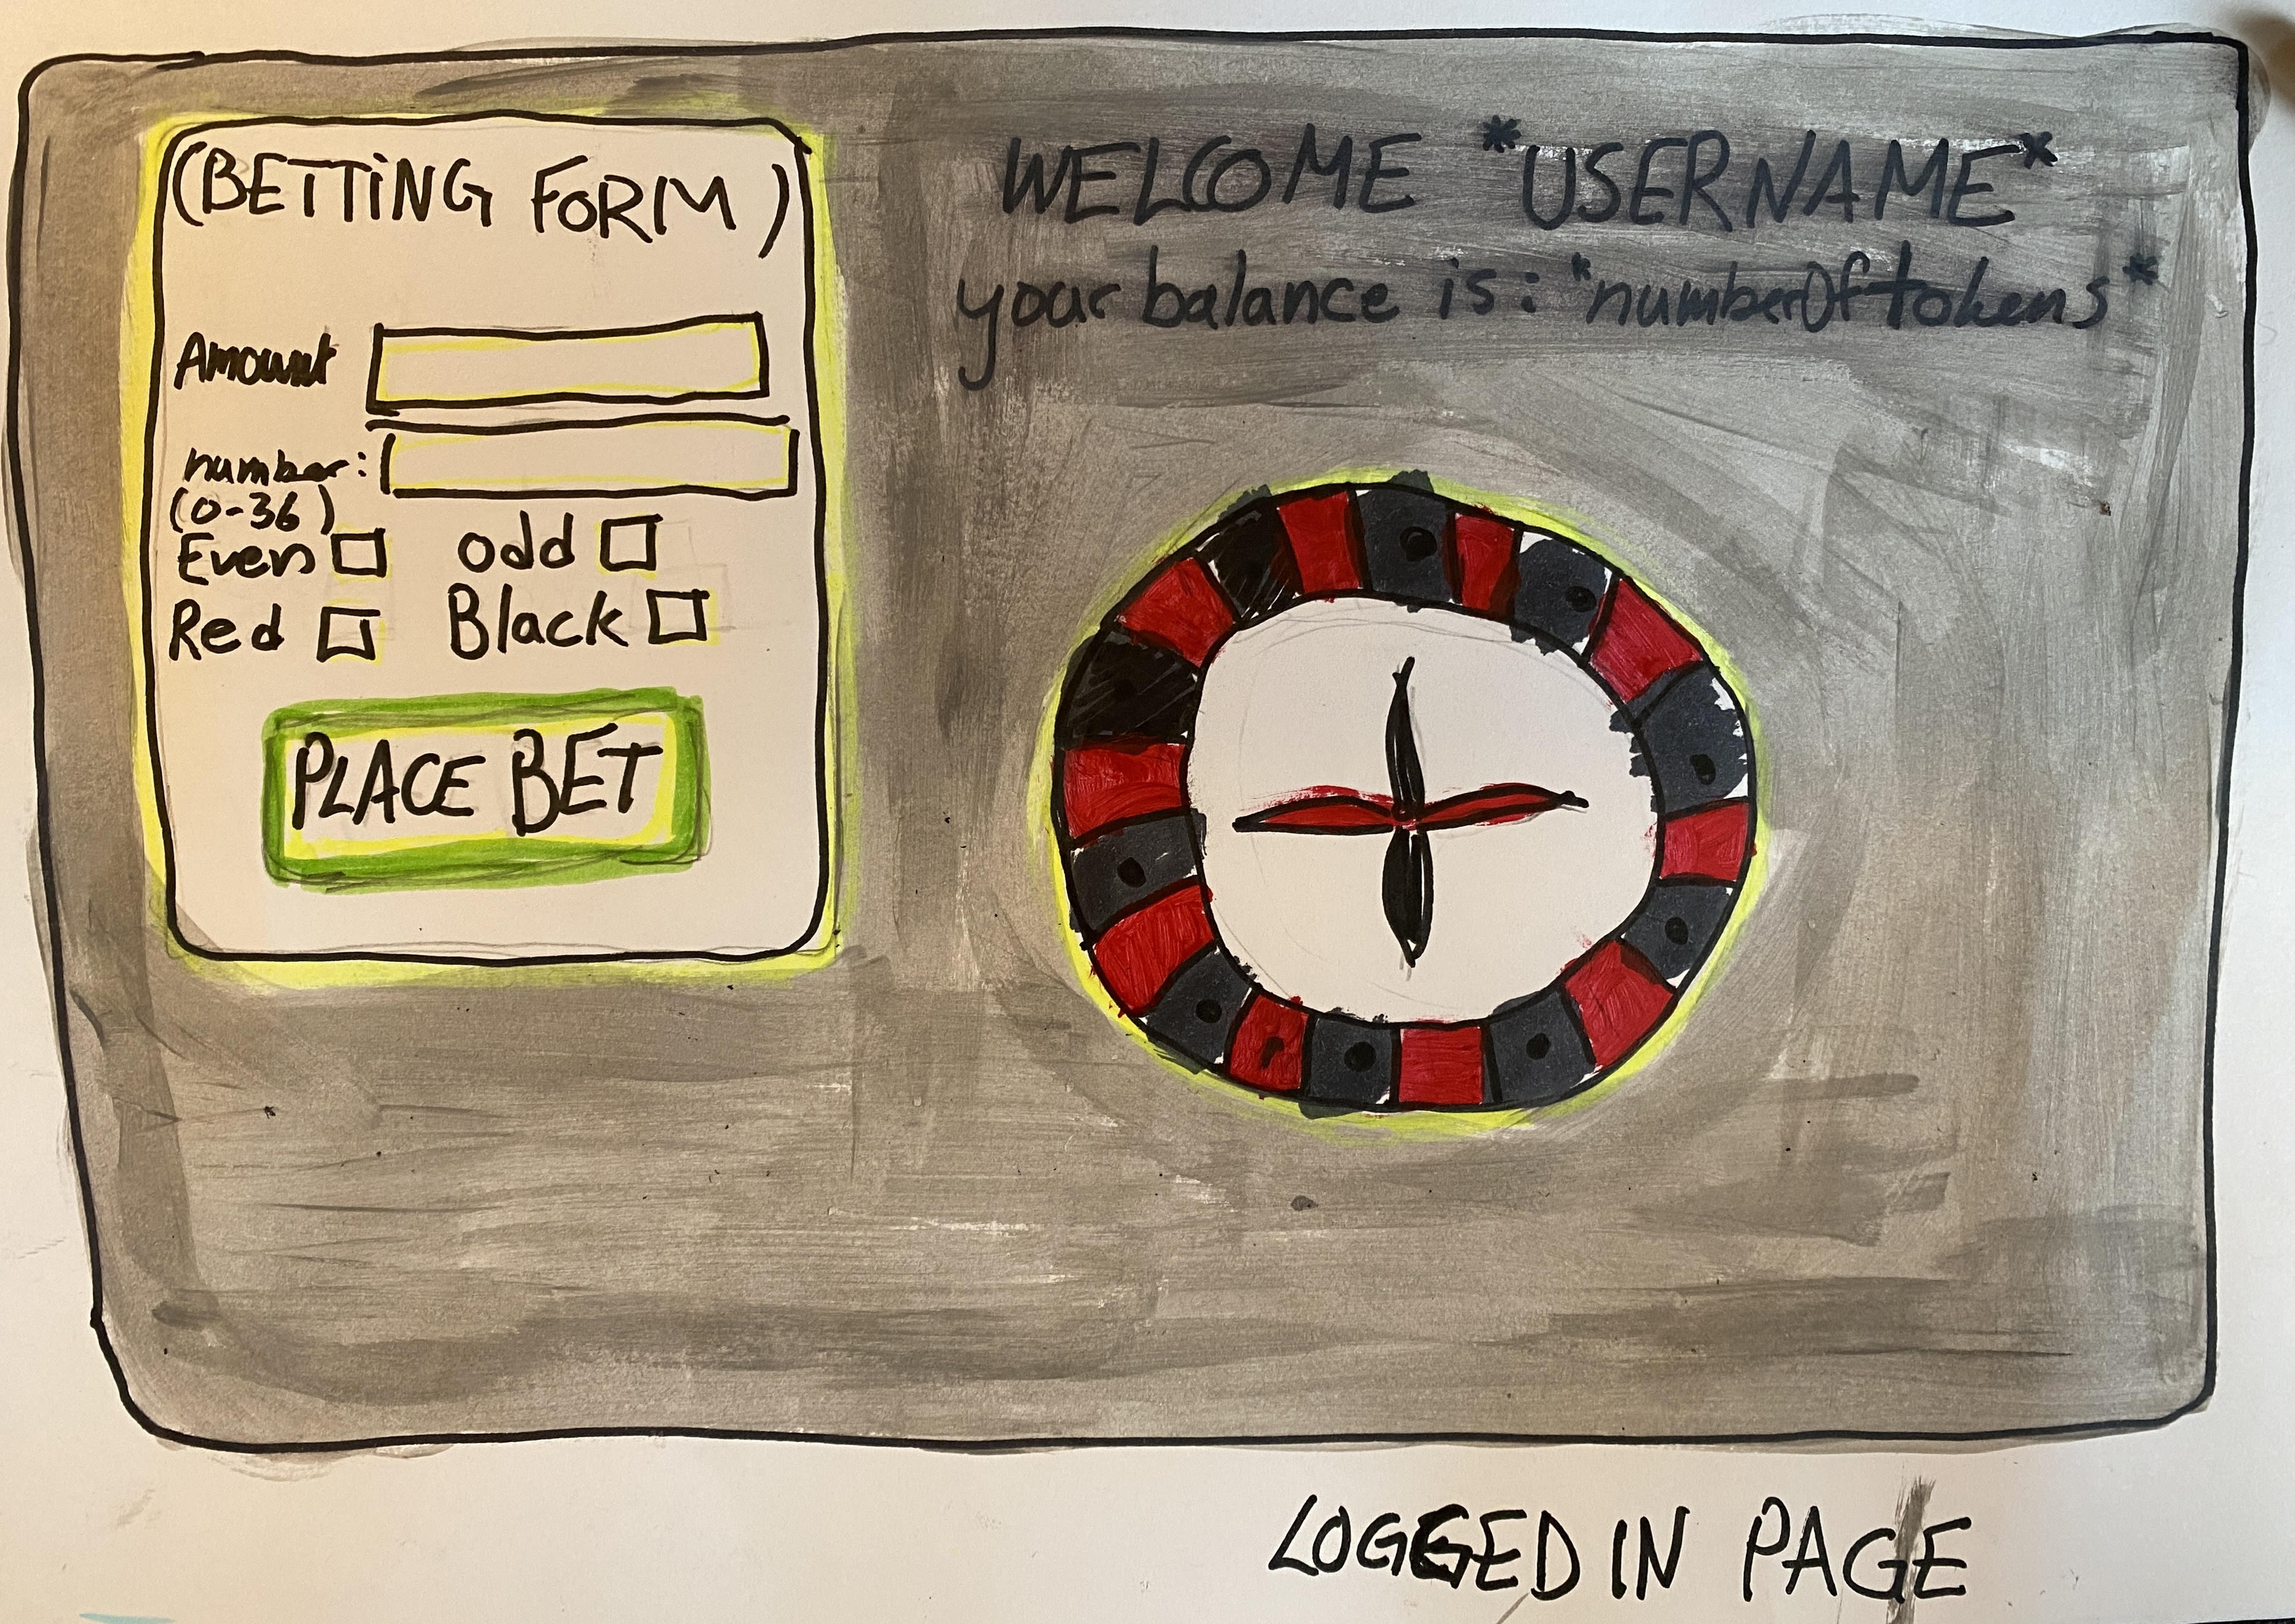 (BETTING FORM)
Amount
number:
(0-36)
Even
odd
Red
Black
PLACE BET
WELCOME *USERNAME*
your balance is: *numberOftokens*
LOGGED IN PAGE